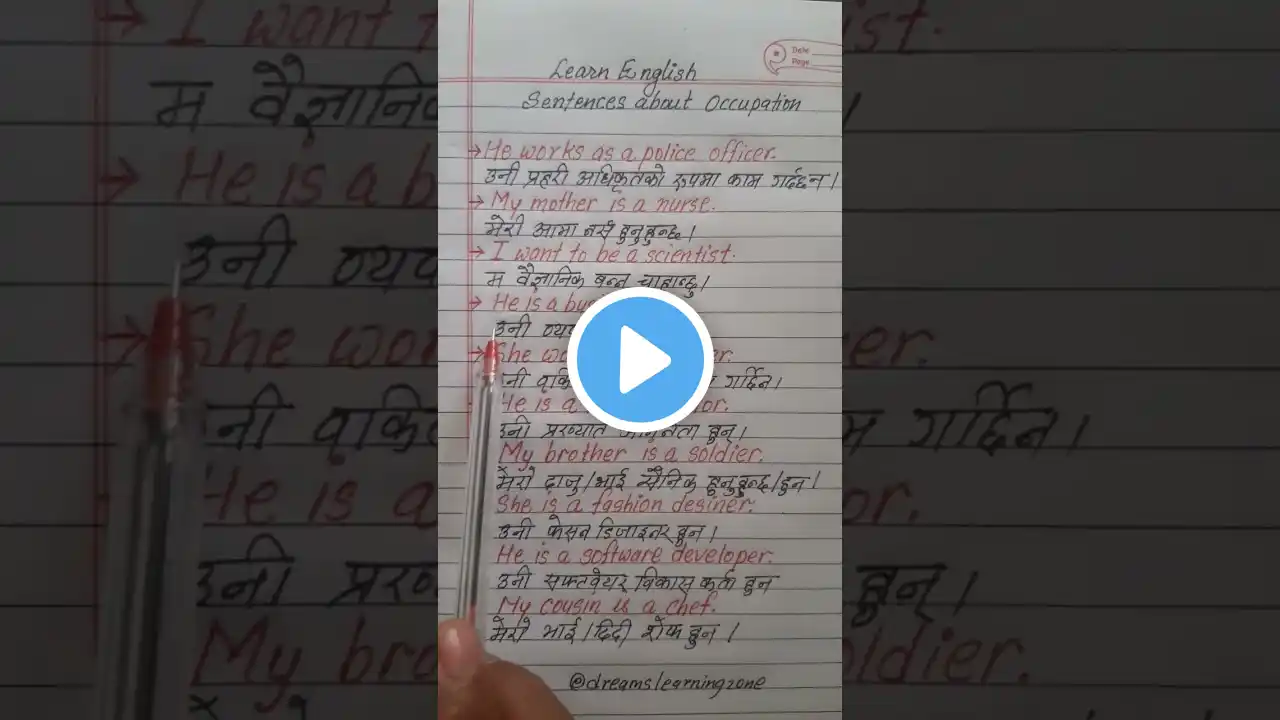 Date
Page
Learn English
Sentences about Occupation
→ He works as a police officer.
उनी प्रहरी अधिकृतको रुपमा काम गर्दछन ।
→ My mother is a nurse.
मेरी आमा नर्स हुनुहुन्छ ।
→ I want to be a scientist.
म वैज्ञानिक बन्न चाहान्छु ।
→ He is a
उनी
→ She er.
गर्छिन ।
He is a or.
उनी प्रख्यात हुन् ।
My brother is a soldier.
मेरो दाजु/भाई सैनिक हुनुहुन्छ/हुन ।
She is a fashion desiner.
उनी फेसन डिजाइनर हुन ।
He is a software developer.
उनी सफ्टवेयर विकास कर्ता हुन
My cousin is a chef.
मेरो भाई/दिदी शेफ हुन ।
@dreamslearningzone